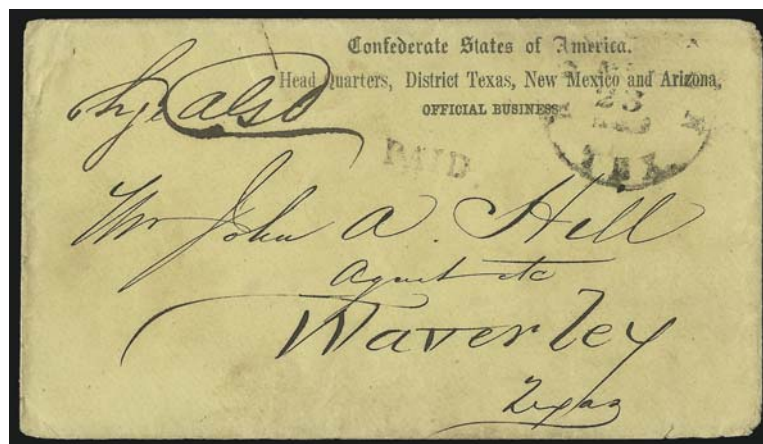 Confederate States of America,
Head Quarters, District Texas, New Mexico and Arizona,
OFFICIAL BUSINESS
also
23
PAID.
TEX
Mr John A. Hill
Agent etc
Waverley
Texas